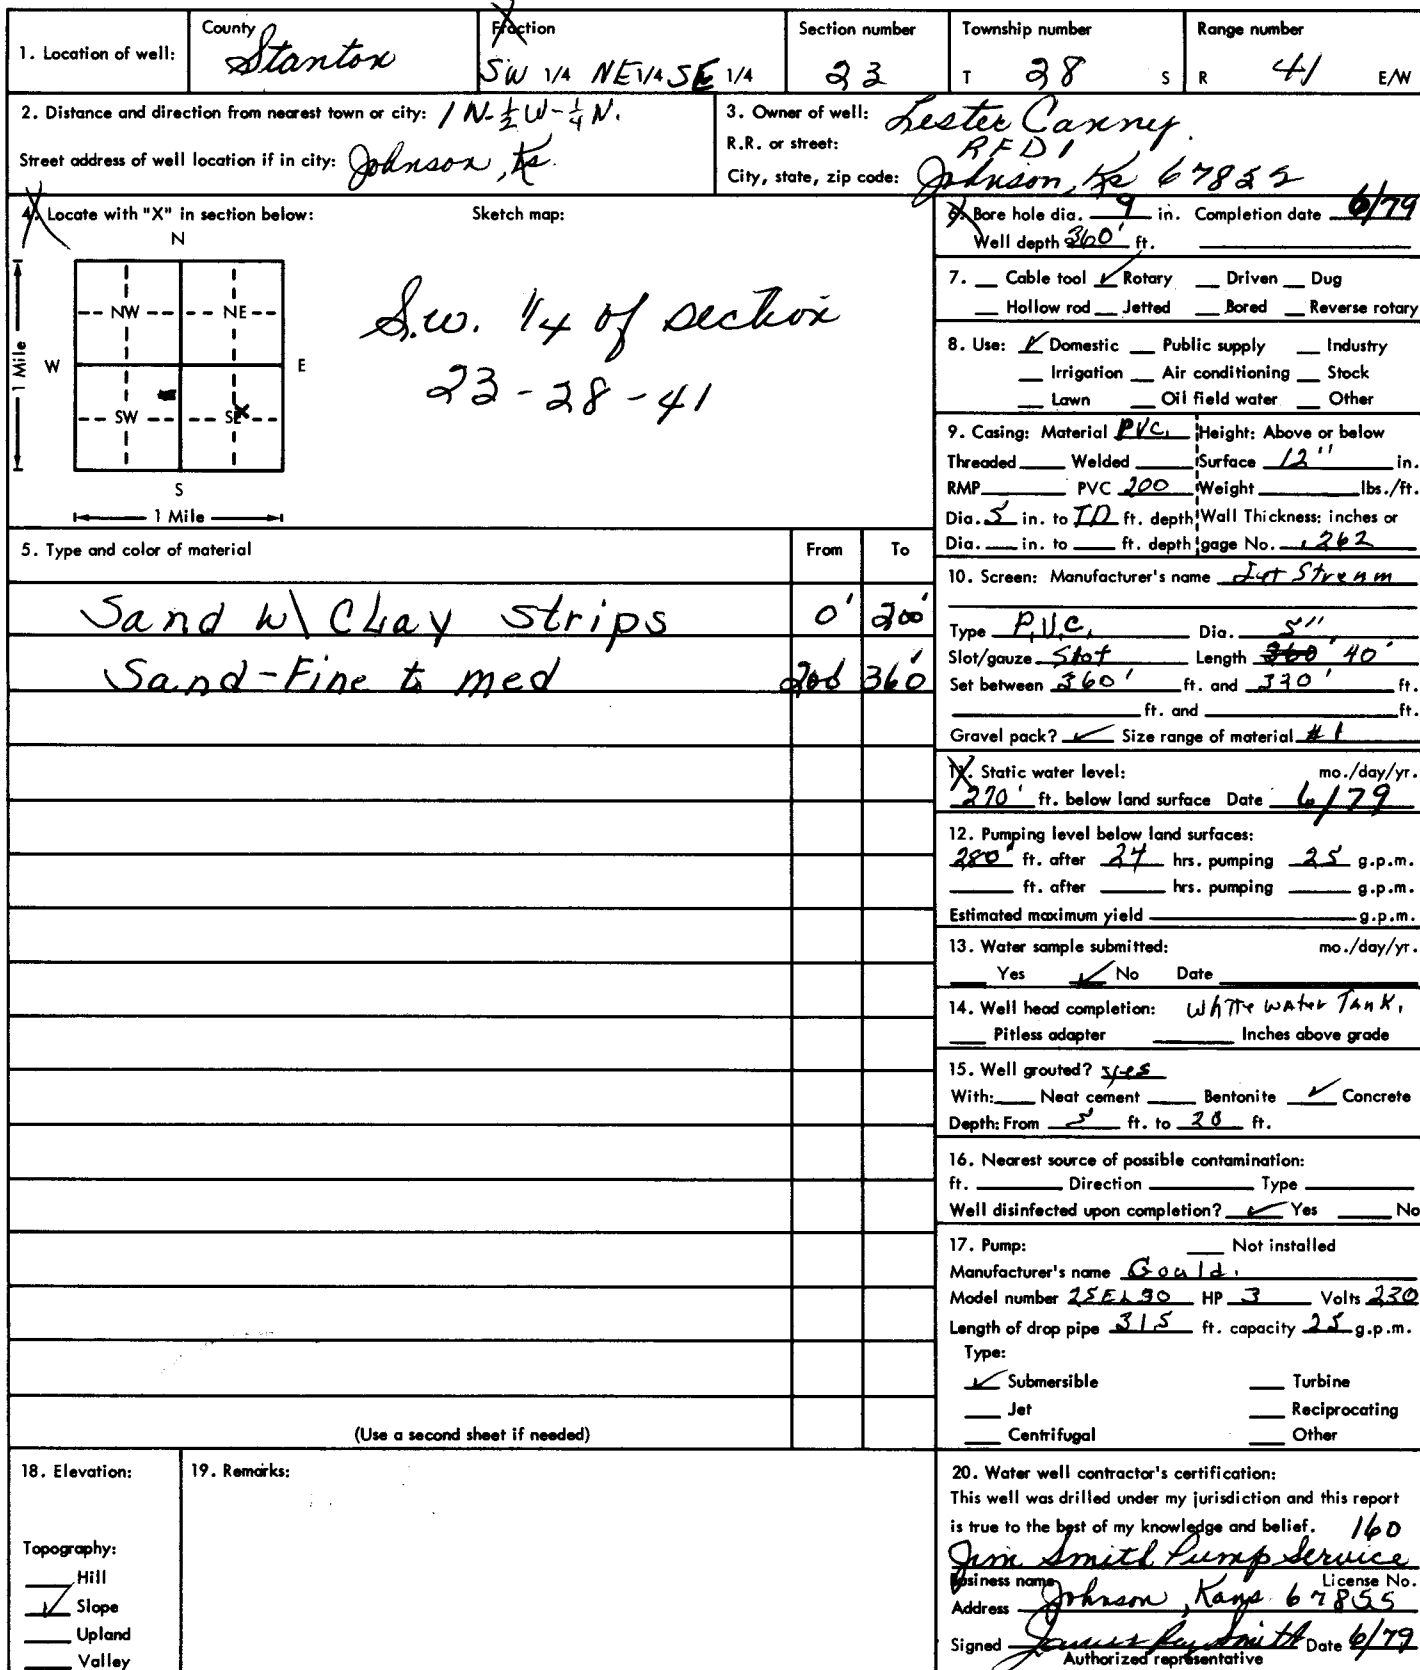 1. Location of well: County Stanton Fraction SW 1/4 NE 1/4 SE 1/4 Section number 23 Township number T 28 S Range number R 41 E/W
2. Distance and direction from nearest town or city: 1 N-½W-¼N.
Street address of well location if in city: Johnson, Ks.
3. Owner of well: Lester Canny.
R.R. or street: RFD1
City, state, zip code: Johnson, Ks 67855
4. Locate with "X" in section below: Sketch map:
N
NW NE
W E
SW SE X
S
1 Mile
1 Mile
S.W. 1/4 of section
23-28-41
5. Type and color of material From To
Sand w\ CLay strips 0' 200'
Sand-Fine to med 200 360'
(Use a second sheet if needed)
6. Bore hole dia. 9 in. Completion date 6/79
Well depth 360' ft.
7. Cable tool ✓ Rotary Driven Dug
Hollow rod Jetted Bored Reverse rotary
8. Use: ✓ Domestic Public supply Industry
Irrigation Air conditioning Stock
Lawn Oil field water Other
9. Casing: Material PVC. Height: Above or below
Threaded Welded Surface 12" in.
RMP PVC 200 Weight lbs./ft.
Dia. 5 in. to TD ft. depth Wall Thickness: inches or
Dia. in. to ft. depth gage No. .262
10. Screen: Manufacturer's name Stream
Type P.V.C. Dia. 5"
Slot/gauze Slot Length 360' 40'
Set between 360' ft. and 320' ft.
ft. and ft.
Gravel pack? ✓ Size range of material #1
11. Static water level: mo./day/yr.
270' ft. below land surface Date 6/79
12. Pumping level below land surfaces:
280' ft. after 24 hrs. pumping 25 g.p.m.
ft. after hrs. pumping g.p.m.
Estimated maximum yield g.p.m.
13. Water sample submitted: mo./day/yr.
Yes ✓ No Date
14. Well head completion: White water Tank.
Pitless adapter Inches above grade
15. Well grouted? yes
With: Neat cement Bentonite ✓ Concrete
Depth: From 5 ft. to 20 ft.
16. Nearest source of possible contamination:
ft. Direction Type
Well disinfected upon completion? ✓ Yes No
17. Pump: Not installed
Manufacturer's name Gould.
Model number 25EL30 HP 3 Volts 230
Length of drop pipe 315 ft. capacity 25 g.p.m.
Type:
✓ Submersible Turbine
Jet Reciprocating
Centrifugal Other
18. Elevation:
Topography:
Hill
✓ Slope
Upland
Valley
19. Remarks:
20. Water well contractor's certification:
This well was drilled under my jurisdiction and this report
is true to the best of my knowledge and belief. 160
Jim Smith Pump Service
Business name License No.
Address Johnson, Kans 67855
Signed James Ray Smith Date 6/79
Authorized representative